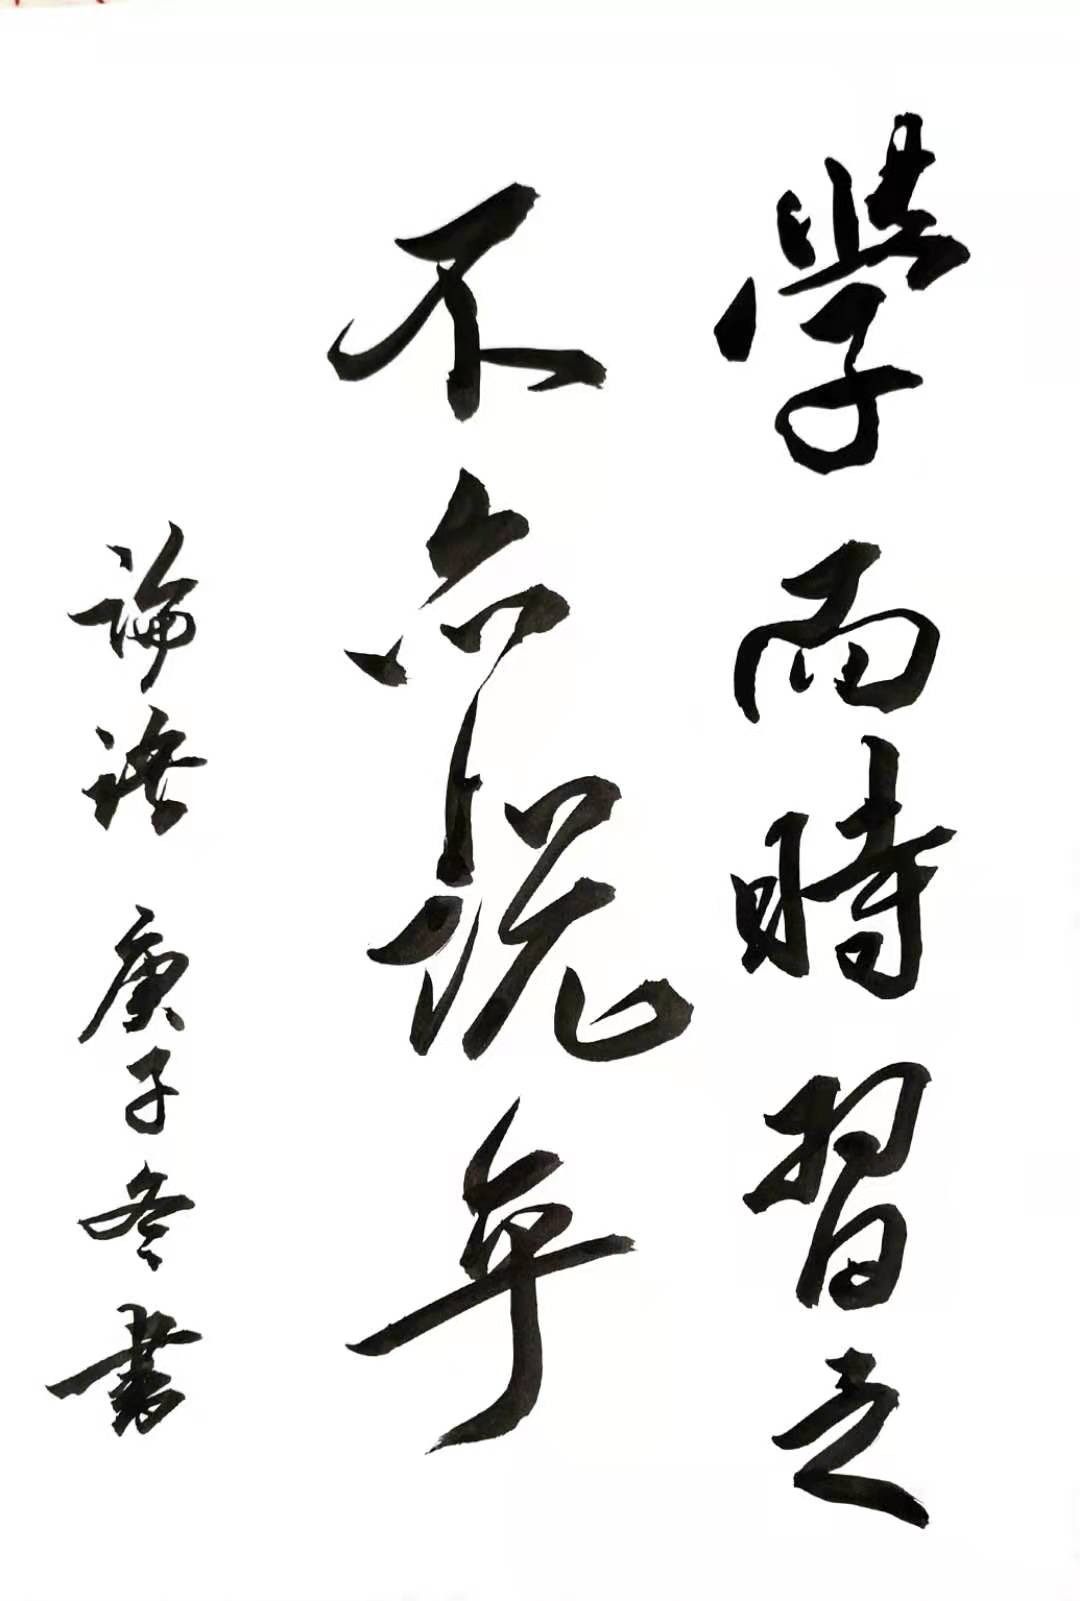 學而時習之
不亦説乎
論語 庚子冬書